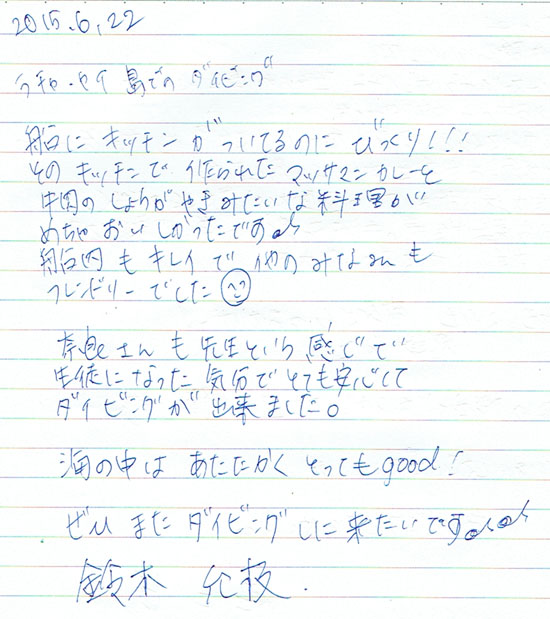 2015.6.22
ラチャ・ヤイ島でのダイビング
船にキッチンがついてるのにびっくり!!!
そのキッチンで作られたマッサマンカレーと
牛肉のしょうがやきみたいな料理が
めちゃおいしかったです♪
船内もキレイで他のみなさんも
フレンドリーでした
さんも先生という感じで
生徒になった気分でとても安心して
ダイビングが出来ました。
海の中はあたたかくとってもgood!
ぜひまたダイビングしに来たいです♪♪
鈴木